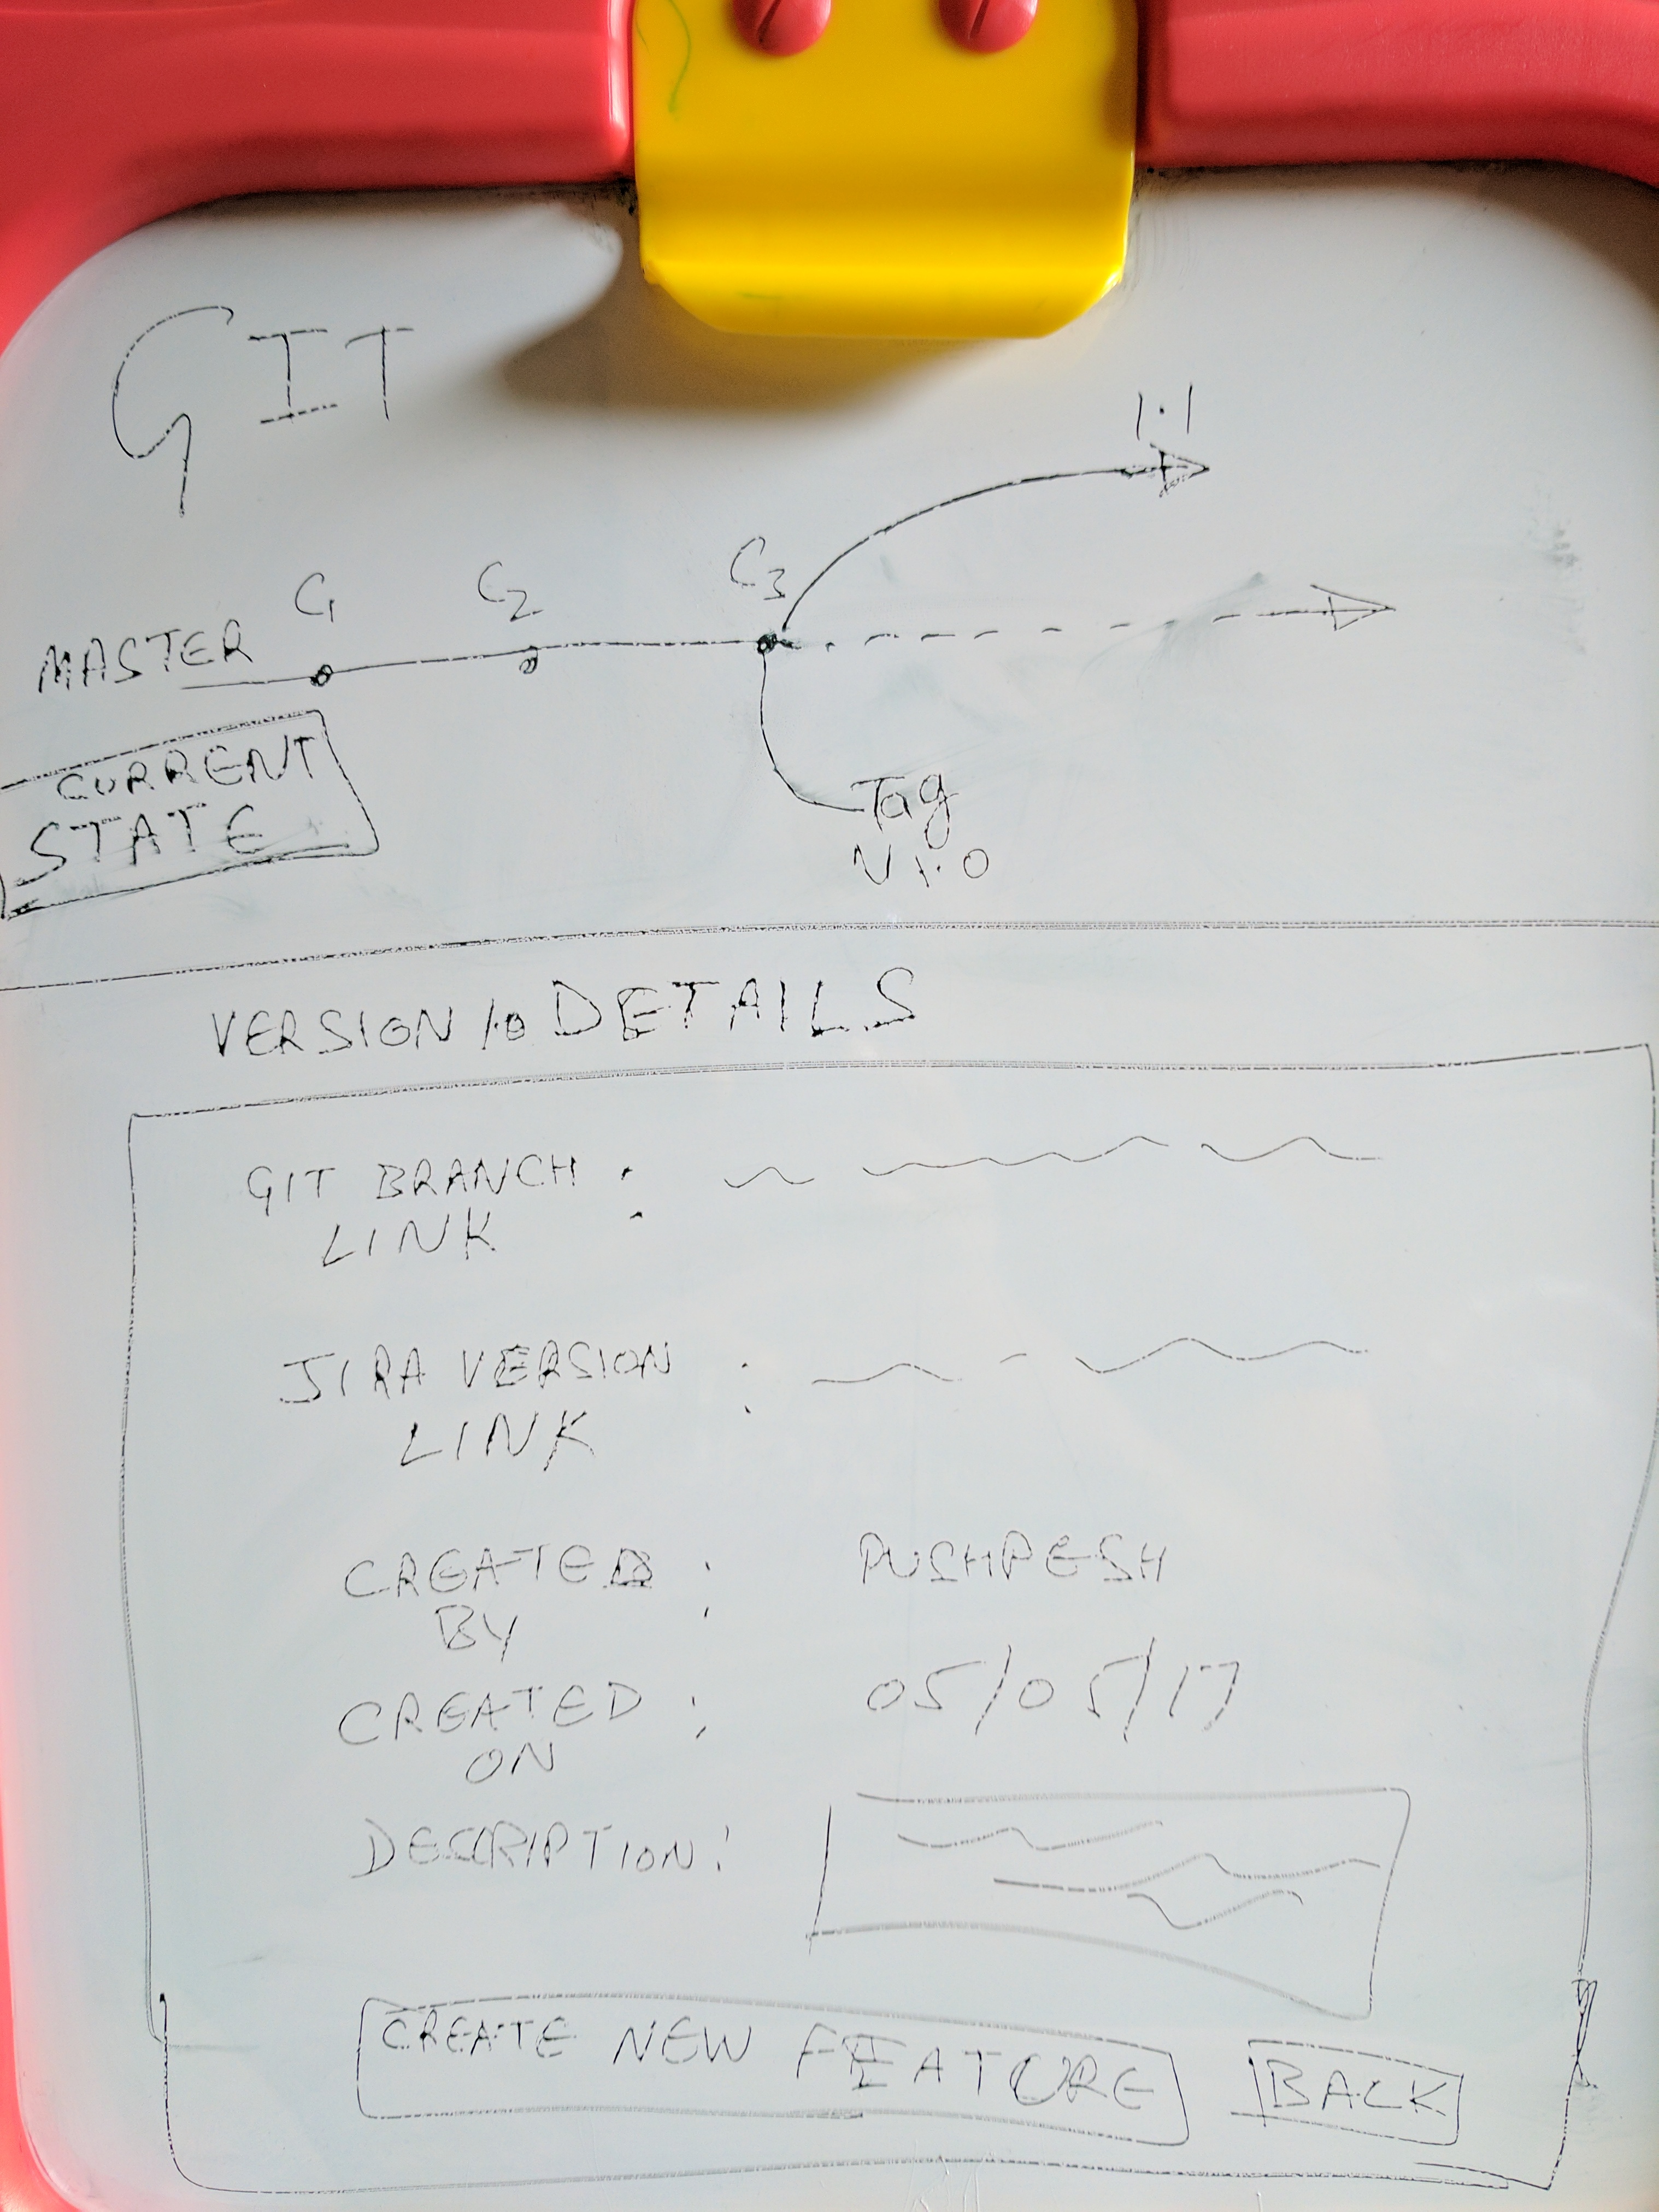 GIT
1.1
C1 C2 C3
MASTER
CURRENT
STATE
Tag
V 1.0
VERSION 1.0 DETAILS
GIT BRANCH :
LINK
JIRA VERSION :
LINK
CREATED : PUSHPESH
BY
CREATED : 05/05/17
ON
DESCRIPTION :
CREATE NEW FEATURE BACK